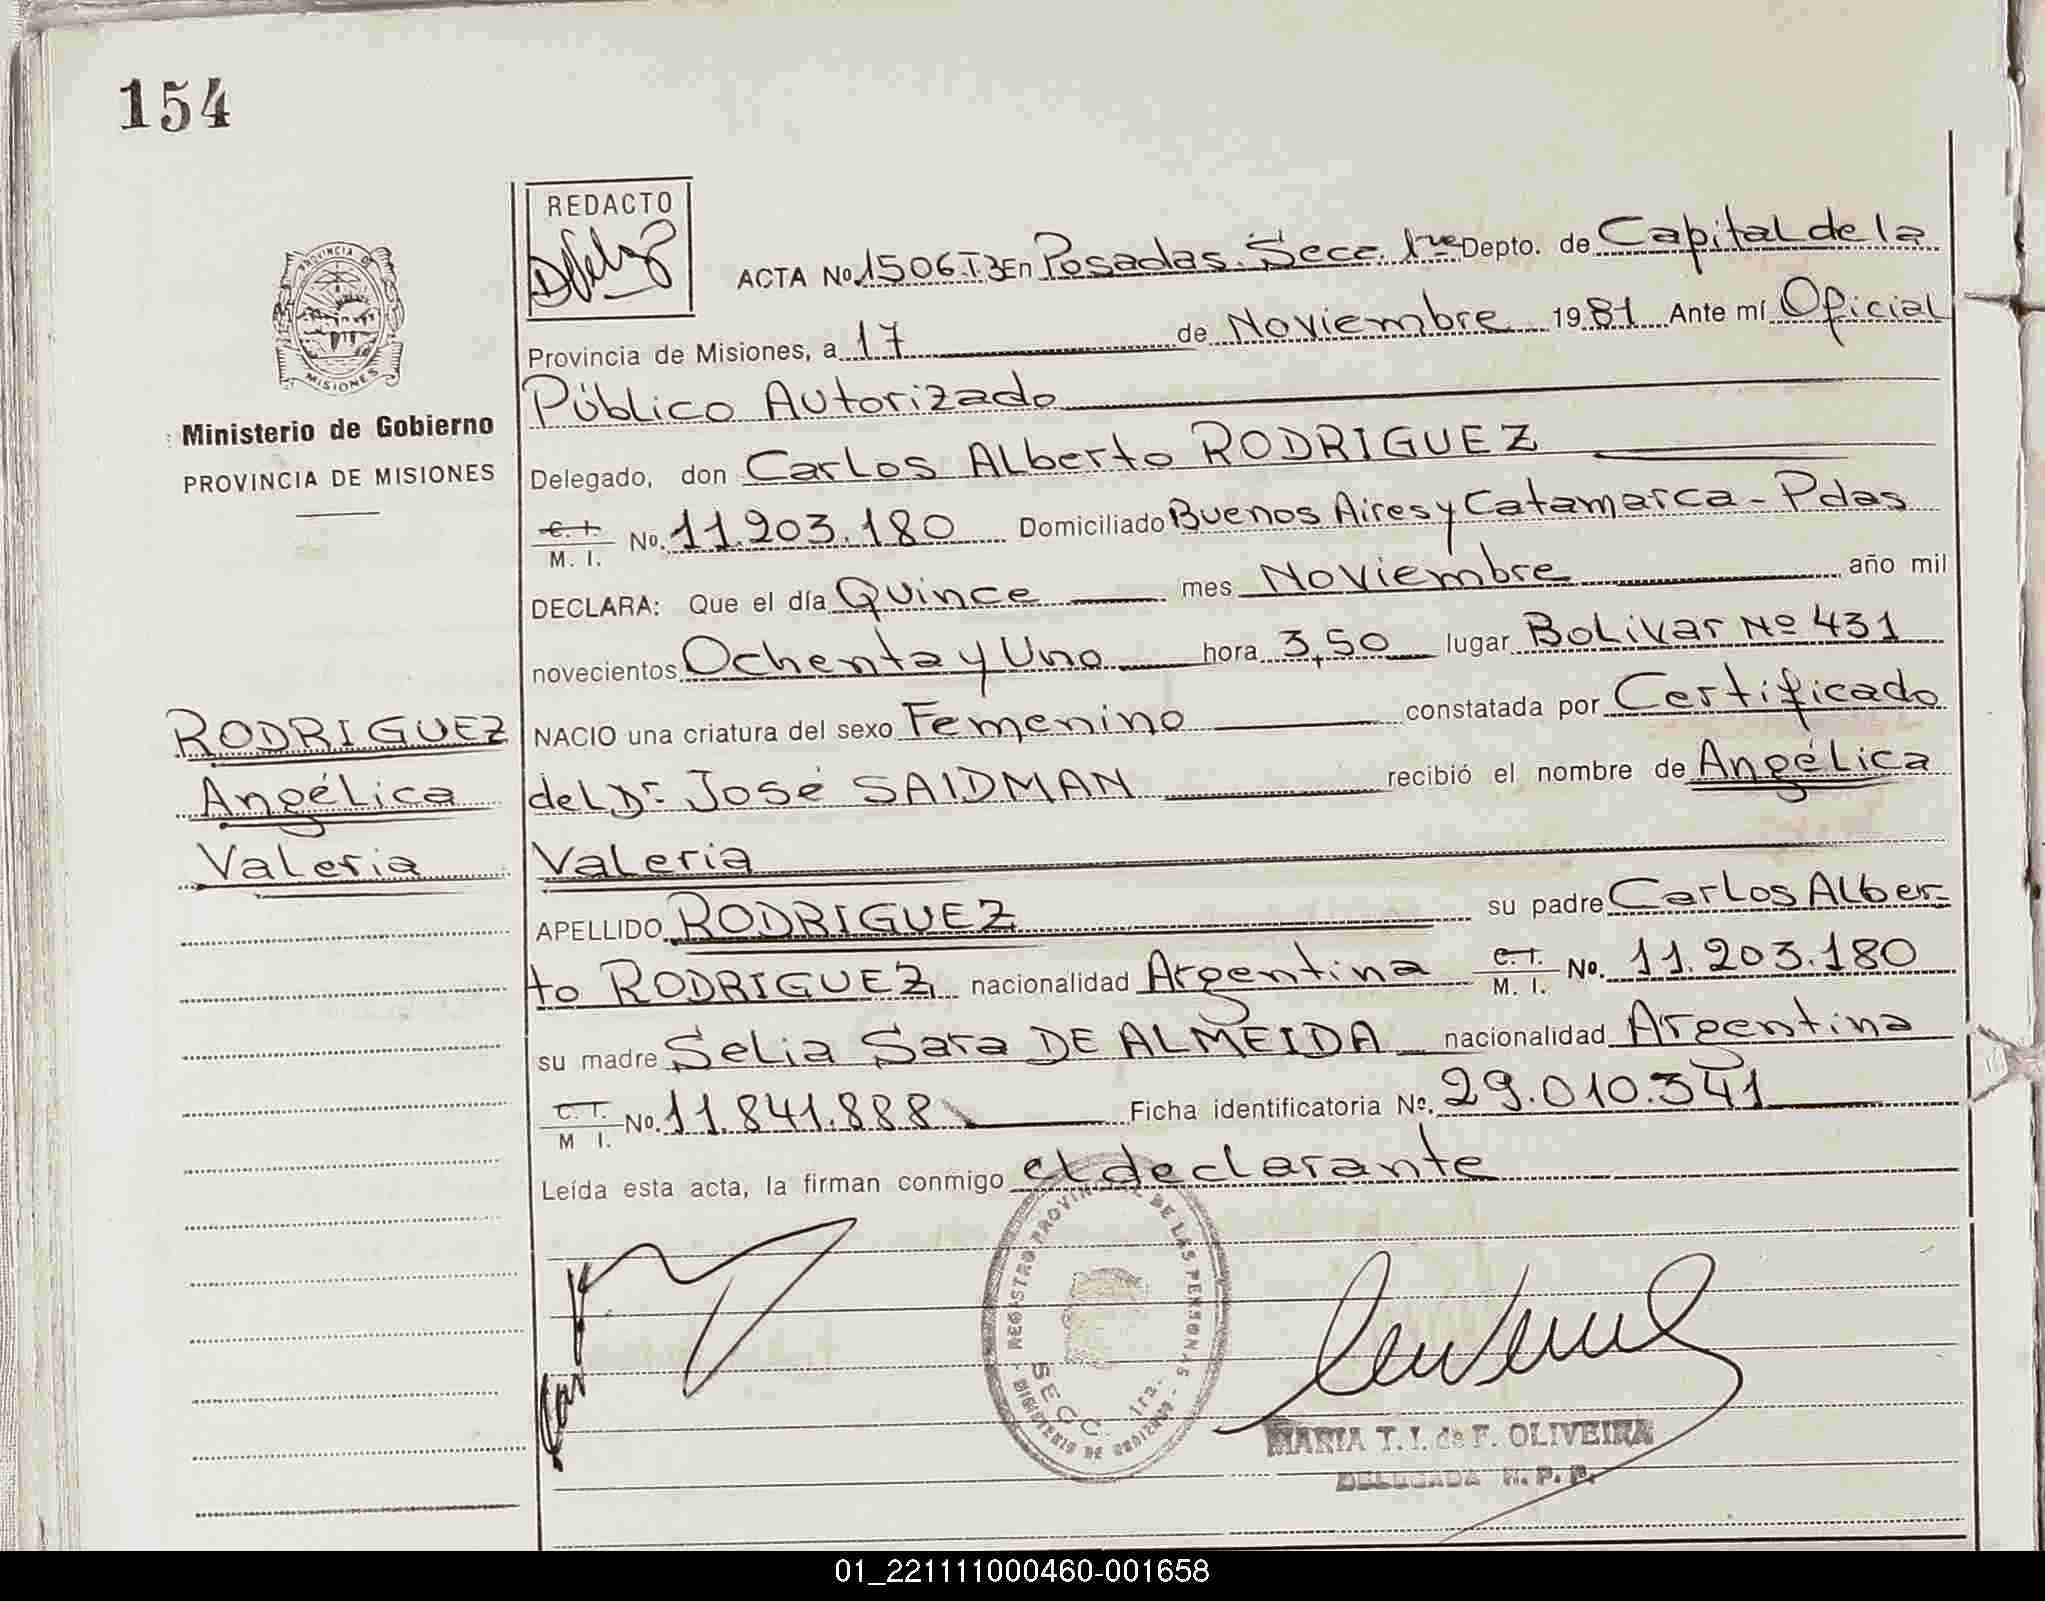 154
REDACTO
PROVINCIA DE
MISIONES
Ministerio de Gobierno
PROVINCIA DE MISIONES
RODRIGUEZ
Angélica
Valeria
ACTA No. 1506 T.3 En Posadas. Secc. 1ra Depto. de Capital de la
Provincia de Misiones, a 17 de Noviembre 1981 Ante mí Oficial
Público Autorizado
Delegado, don Carlos Alberto RODRIGUEZ
C. I.
M. I. No. 11.203.180 Domiciliado Buenos Aires y Catamarca - Pdas
DECLARA: Que el día Quince mes Noviembre año mil
novecientos Ochenta y Uno hora 3,50 lugar Bolivar Nº 431
NACIO una criatura del sexo Femenino constatada por Certificado
del Dr José SAIDMAN recibió el nombre de Angélica
Valeria
APELLIDO RODRIGUEZ su padre Carlos Alber-
to RODRIGUEZ nacionalidad Argentina C. I. M. I. No. 11.203.180
su madre Selia Sara DE ALMEIDA nacionalidad Argentina
C. I.
M I. No. 11.841.888 Ficha identificatoria No. 29.010.341
Leída esta acta, la firman conmigo el declarante
REGISTRO PROVINCIAL DE LAS PERSONAS
SECC. 1ra.
MINISTERIO DE GOBIERNO
MARIA T. I. de F. OLIVEIRA
DELEGADA R. P. P.
01_221111000460-001658